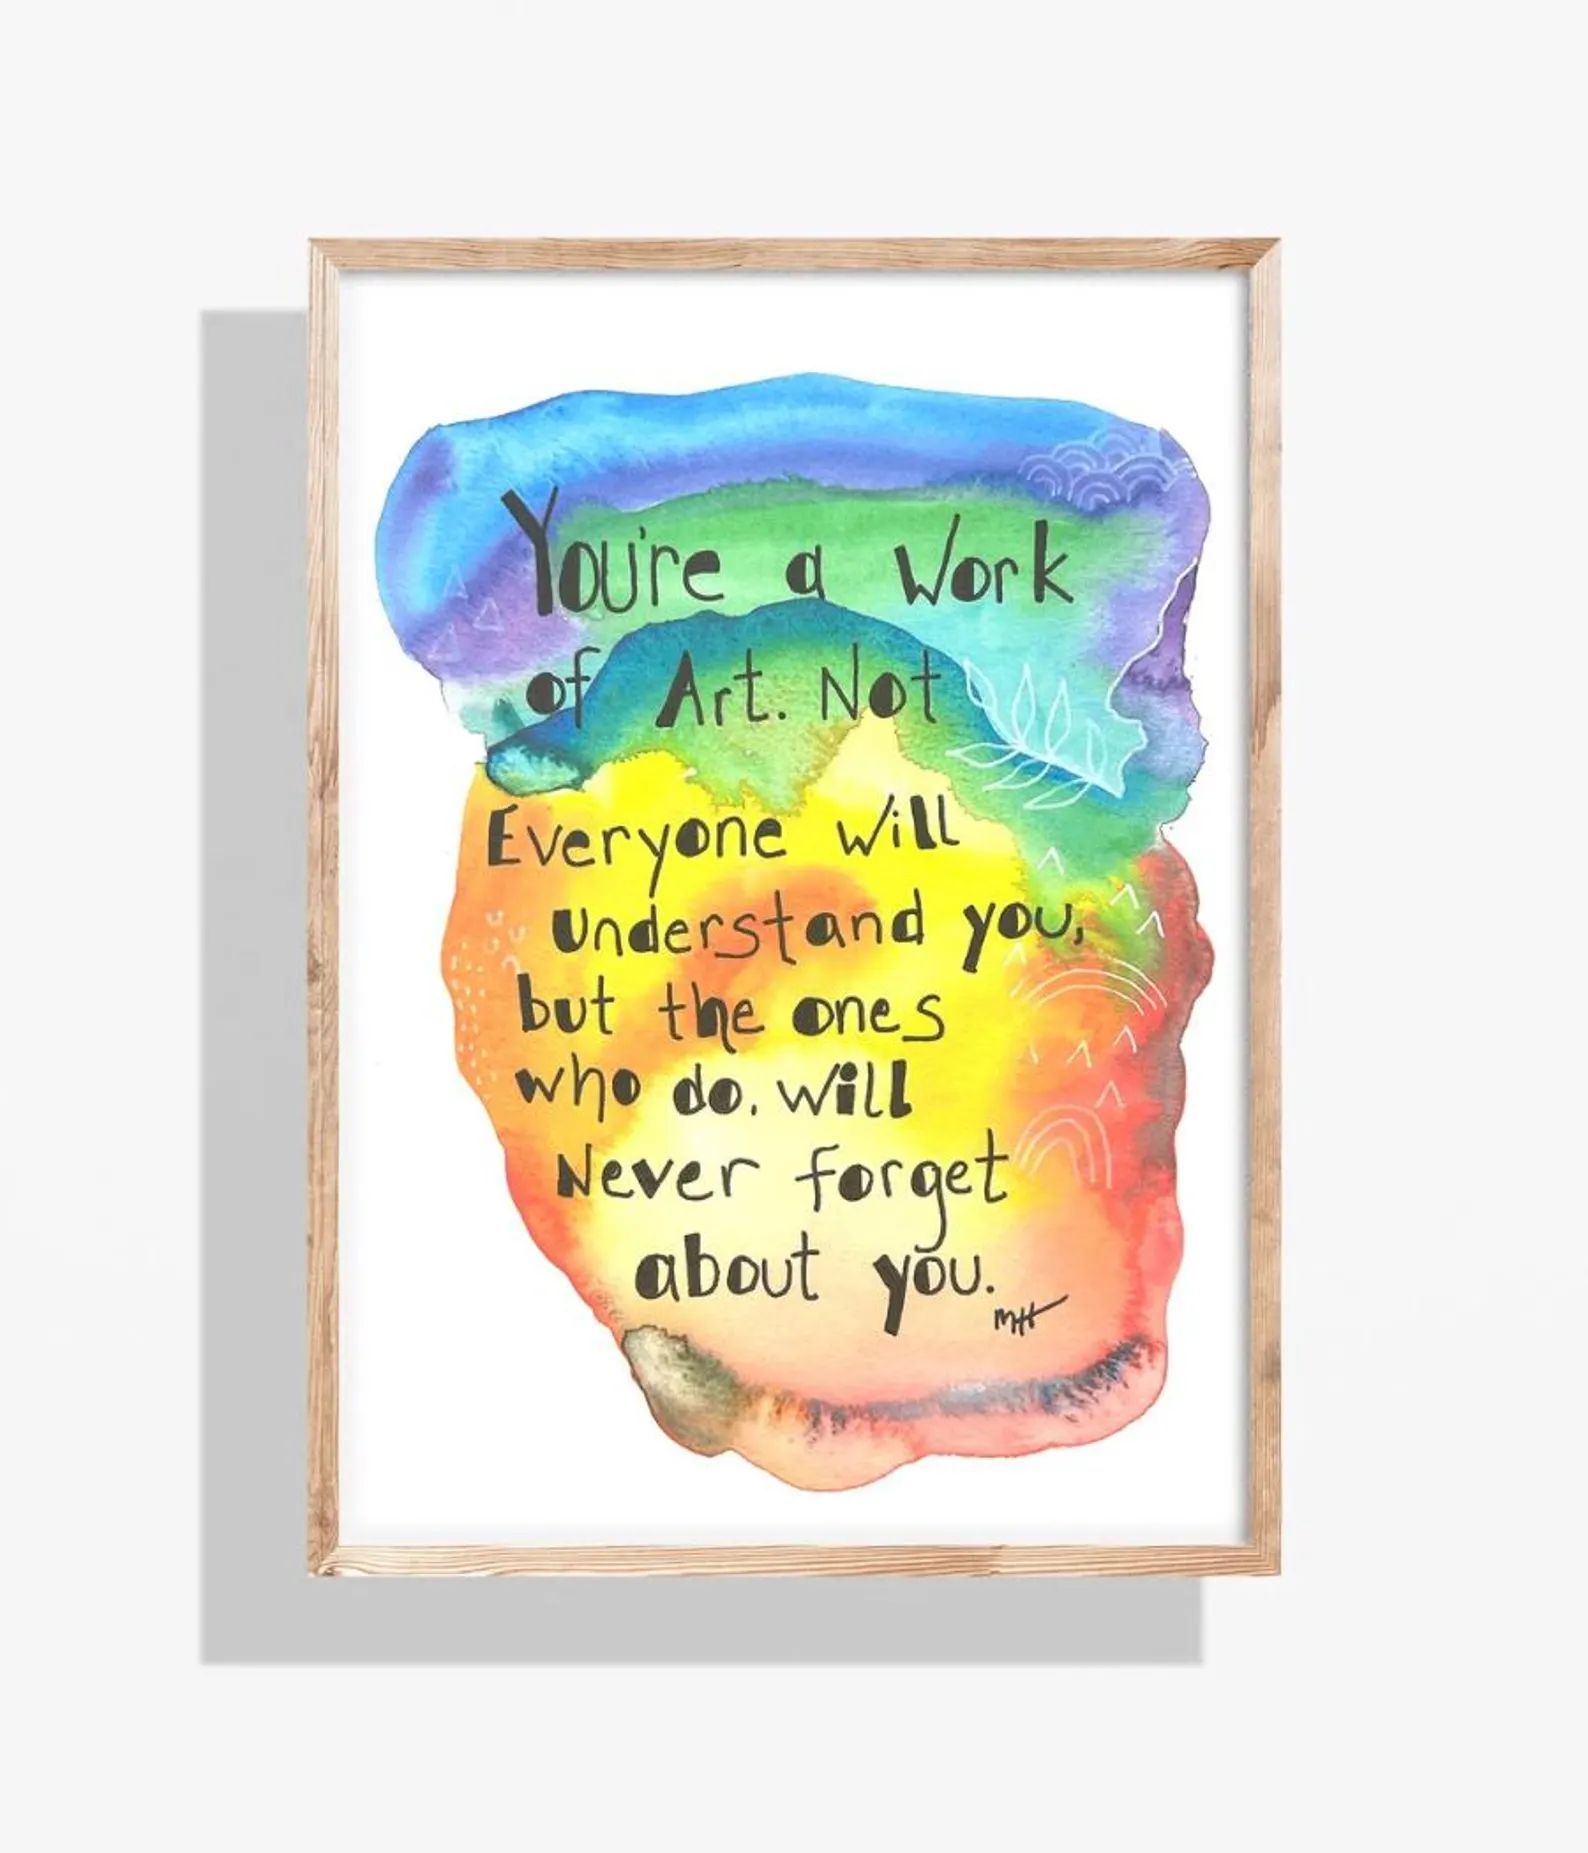 You're a Work
of Art. Not
Everyone will
understand you,
but the ones
who do. will
Never forget
about you.